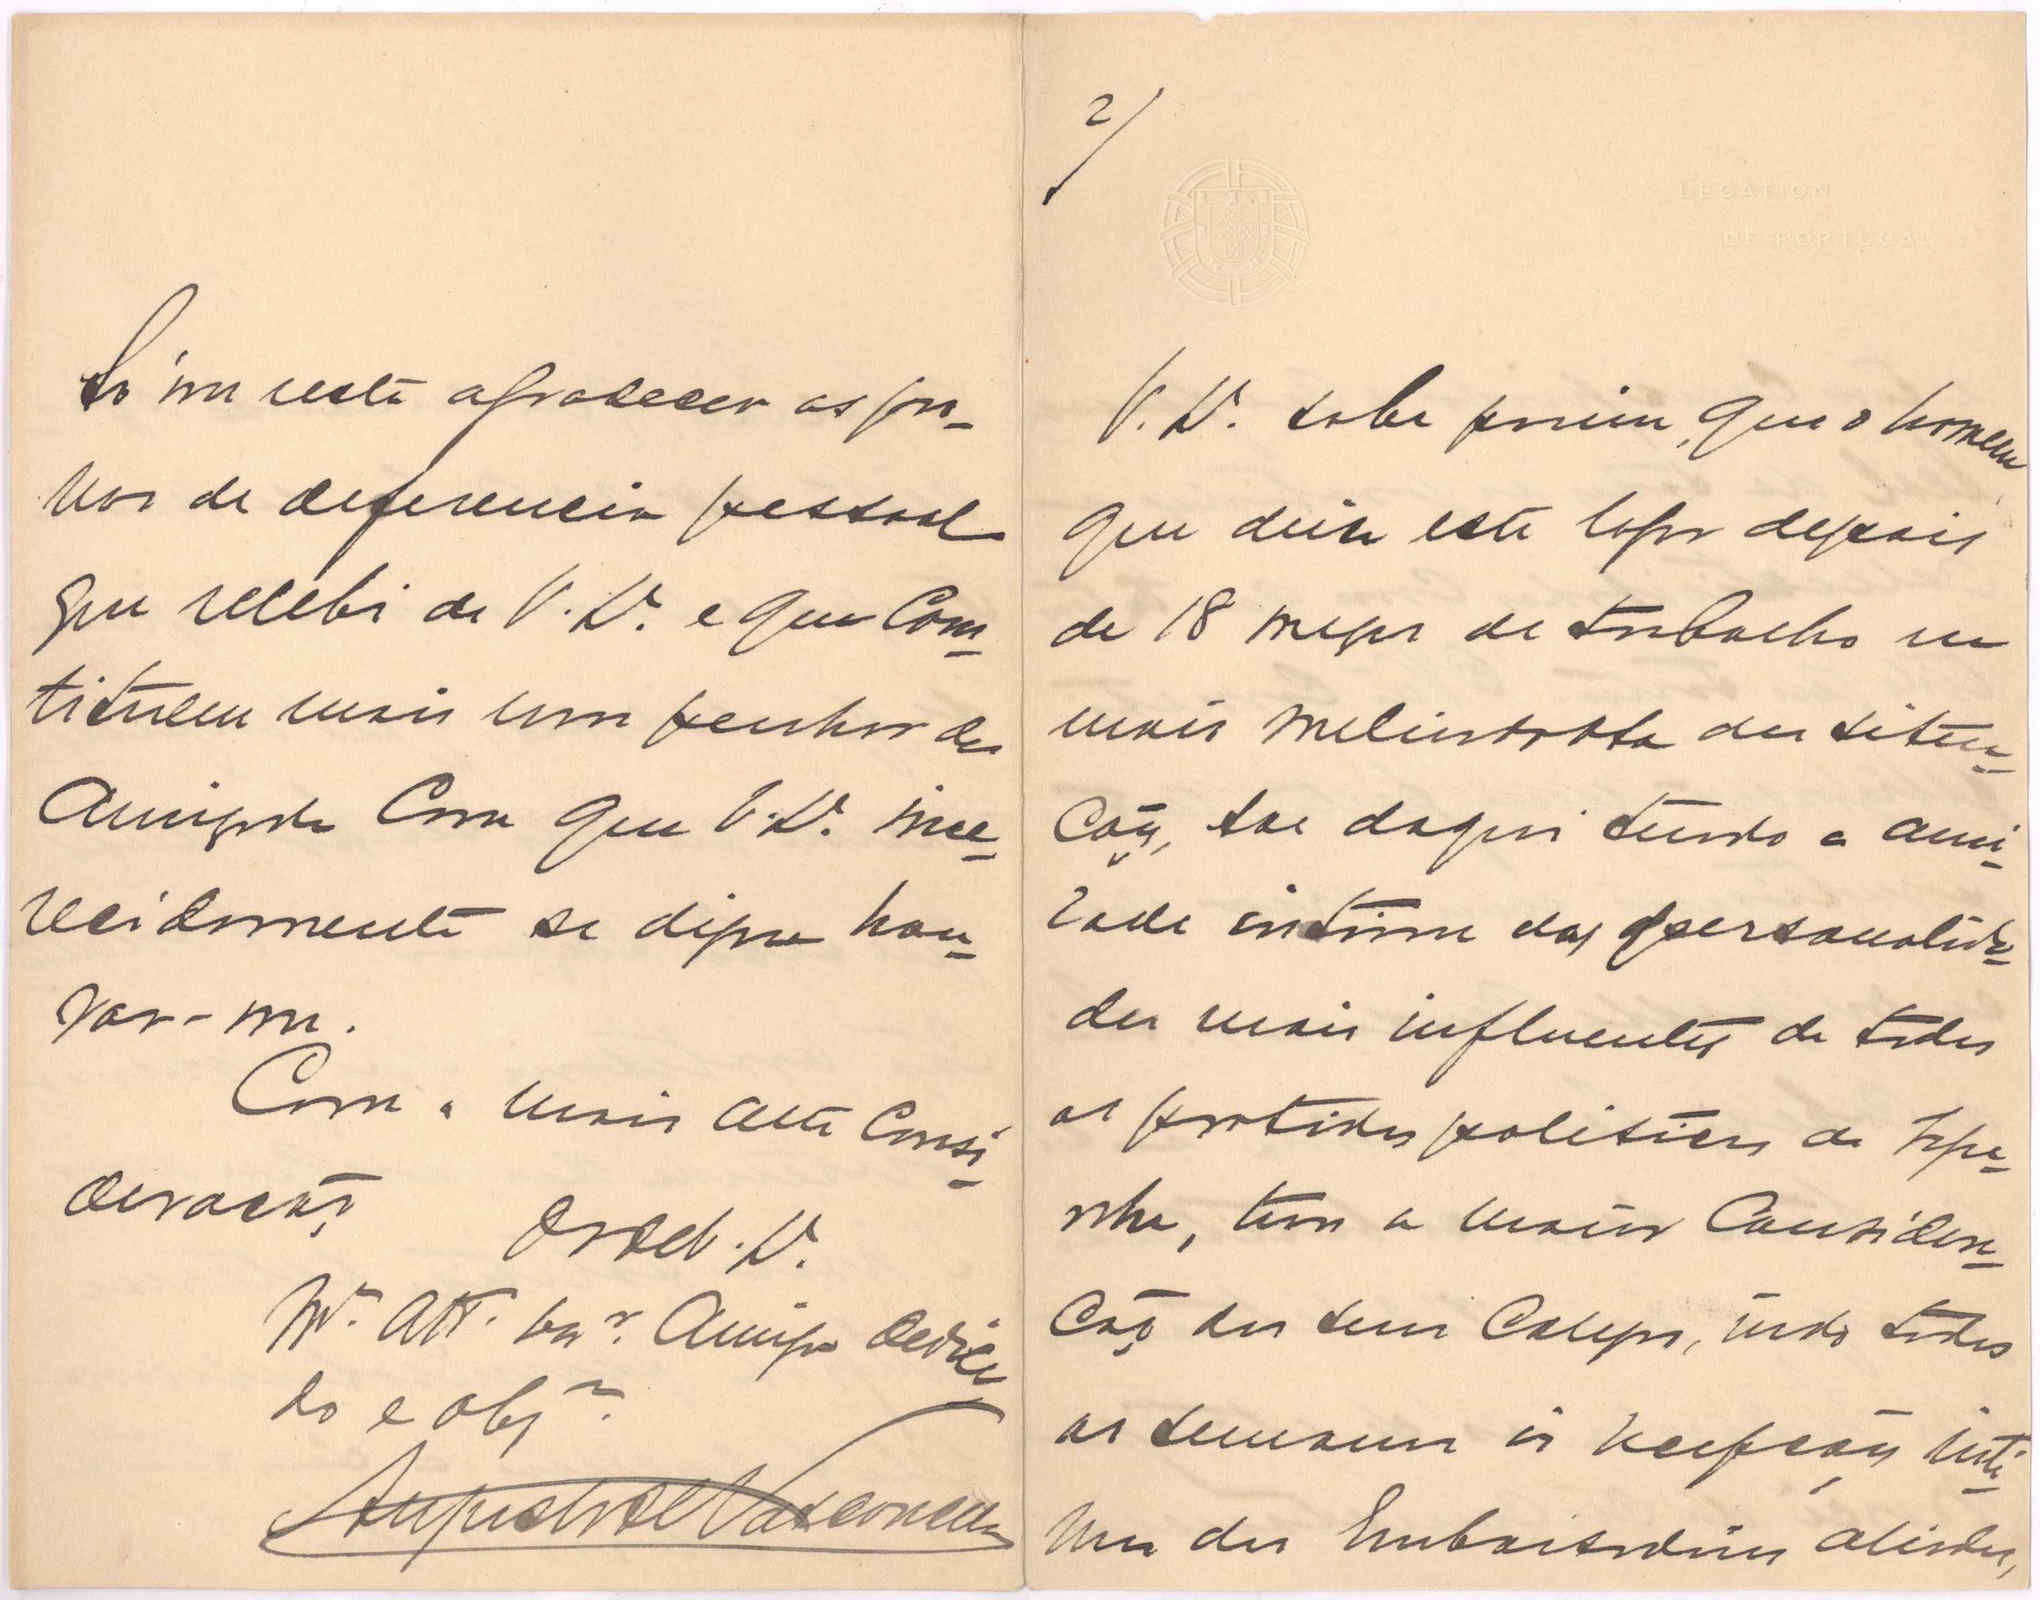 Só me resta agradecer as pro-
vas de deferencia pessoal
que recebi de V. Ex.ª e que cons-
tituem mais um penhor da
amizade com que V. Ex.ª ime-
recidamente se digna hon-
rar-me.
Com a mais alta consi-
deração
De V. Ex.ª
M.to Att.o Ven.or Amigo dedica-
do e obg.do
Augusto de Vasconcellos
2/
LEGATION
DE PORTUGAL
V. Ex.ª sabe porém, que o homem
que deixa este logar depois
de 18 mezes de trabalho na
mais melindrosa das situa-
ções, sae daqui tendo a ami-
zade intima das personalida-
des mais influentes de todos
os partidos politicos de Hespa-
nha, tem a maior considera-
ção dos seus colegas, indo todas
as semanas ás recepções inti-
mas das Embaixadas aliadas,